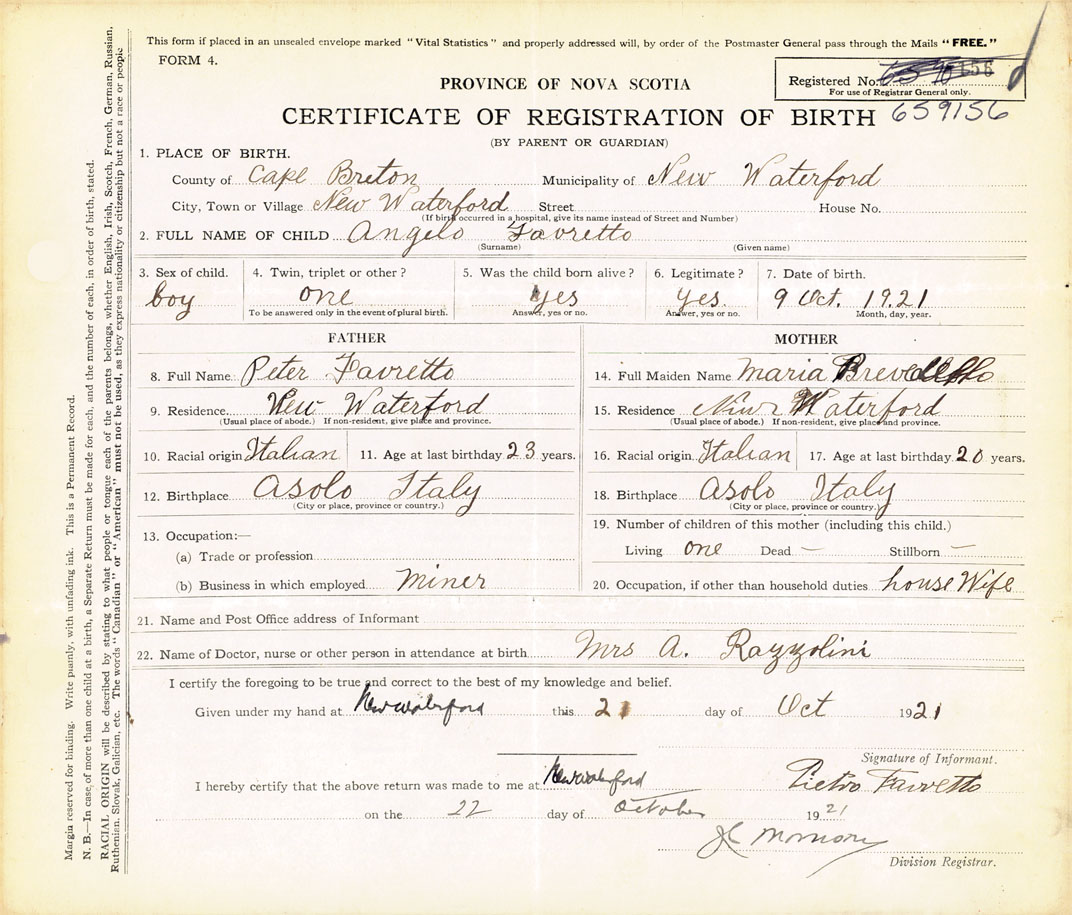 This form if placed in an unsealed envelope marked "Vital Statistics" and properly addressed will, by order of the Postmaster General pass through the Mails "FREE."
FORM 4.
PROVINCE OF NOVA SCOTIA
Registered No.
For use of Registrar General only.
CERTIFICATE OF REGISTRATION OF BIRTH 659156
(BY PARENT OR GUARDIAN)
1. PLACE OF BIRTH.
County of Cape Breton Municipality of New Waterford
City, Town or Village New Waterford Street House No.
(If birth occurred in a hospital, give its name instead of Street and Number)
2. FULL NAME OF CHILD Angelo Favretto
(Surname) (Given name)
3. Sex of child. 4. Twin, triplet or other? 5. Was the child born alive? 6. Legitimate? 7. Date of birth.
boy one yes yes. 9 Oct. 1921
To be answered only in the event of plural birth. Answer, yes or no. Answer, yes or no. Month, day, year.
FATHER MOTHER
8. Full Name Peter Favretto 14. Full Maiden Name Maria
9. Residence New Waterford 15. Residence New Waterford
(Usual place of abode.) If non-resident, give place and province. (Usual place of abode.) If non-resident, give place and province.
10. Racial origin Italian 11. Age at last birthday 23 years. 16. Racial origin Italian 17. Age at last birthday 20 years.
12. Birthplace Asolo Italy 18. Birthplace Asolo Italy
(City or place, province or country.) (City or place, province or country.)
13. Occupation:— 19. Number of children of this mother (including this child.)
(a) Trade or profession Living one Dead — Stillborn —
(b) Business in which employed Miner 20. Occupation, if other than household duties house Wife
21. Name and Post Office address of Informant
22. Name of Doctor, nurse or other person in attendance at birth Mrs A. Razzolini
I certify the foregoing to be true and correct to the best of my knowledge and belief.
Given under my hand at New Waterford this 21 day of Oct 1921
Signature of Informant.
I hereby certify that the above return was made to me at New Waterford Pietro Favretto
on the 22 day of October 1921
Division Registrar.
Margin reserved for binding. Write plainly, with unfading ink. This is a Permanent Record.
N. B.—In case of more than one child at a birth, a Separate Return must be made for each, and the number of each, in order of birth, stated.
RACIAL ORIGIN will be described by stating to what people or tongue each of the parents belongs, whether English, Irish, Scotch, French, German, Russian,
Ruthenian, Slovak, Galician, etc. The words "Canadian" or "American" must not be used, as they express nationality or citizenship but not a race or people